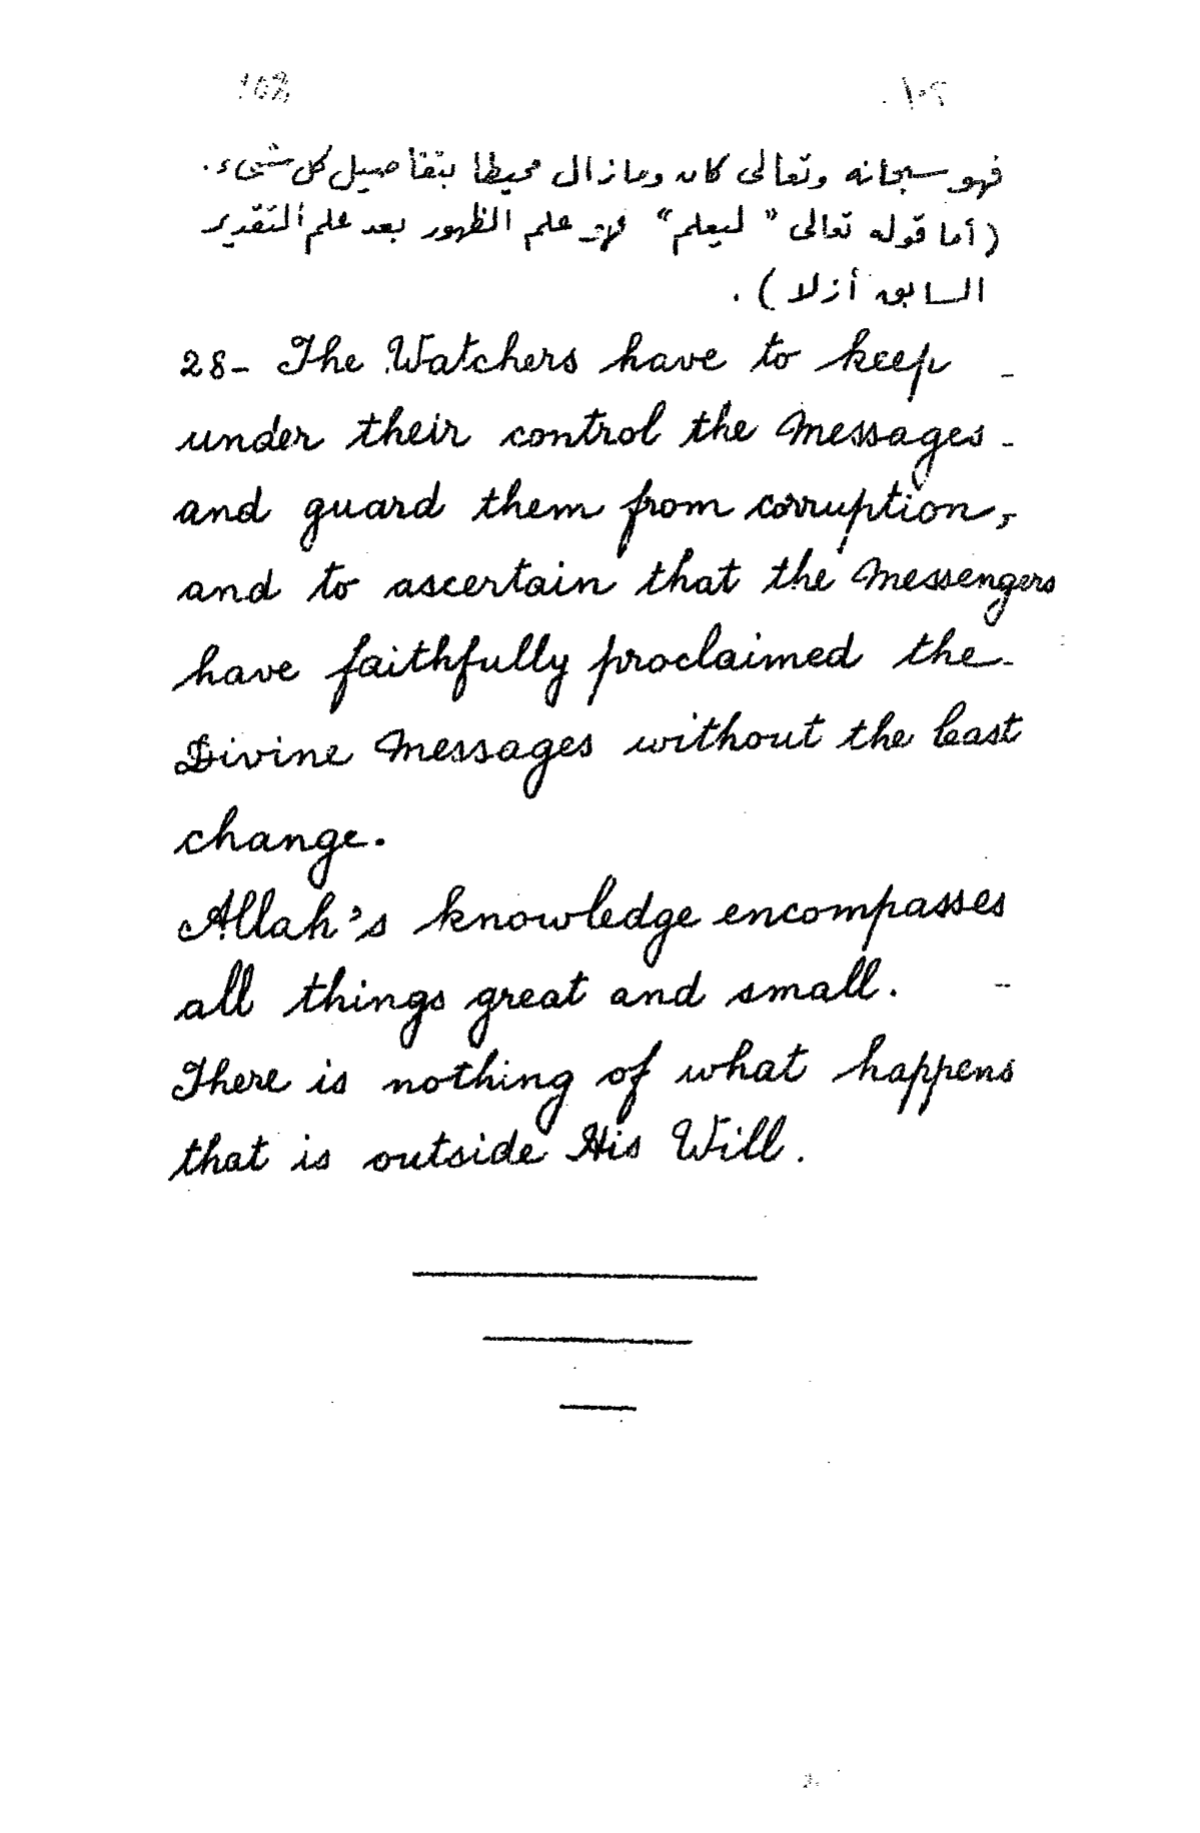 فهو سبحانه وتعالى كان ومازال محيطا بتفاصيل كل شىء.
(أما قوله تعالى " ليعلم " فهو علم الظهور بعد علم التقدير
السابق أزلا ) .
28- The Watchers have to keep -
under their control the Messages -
and guard them from corruption,
and to ascertain that the Messengers
have faithfully proclaimed the -
Divine Messages without the least
change.
Allah's knowledge encompasses
all things great and small. --
There is nothing of what happens
that is outside His Will.